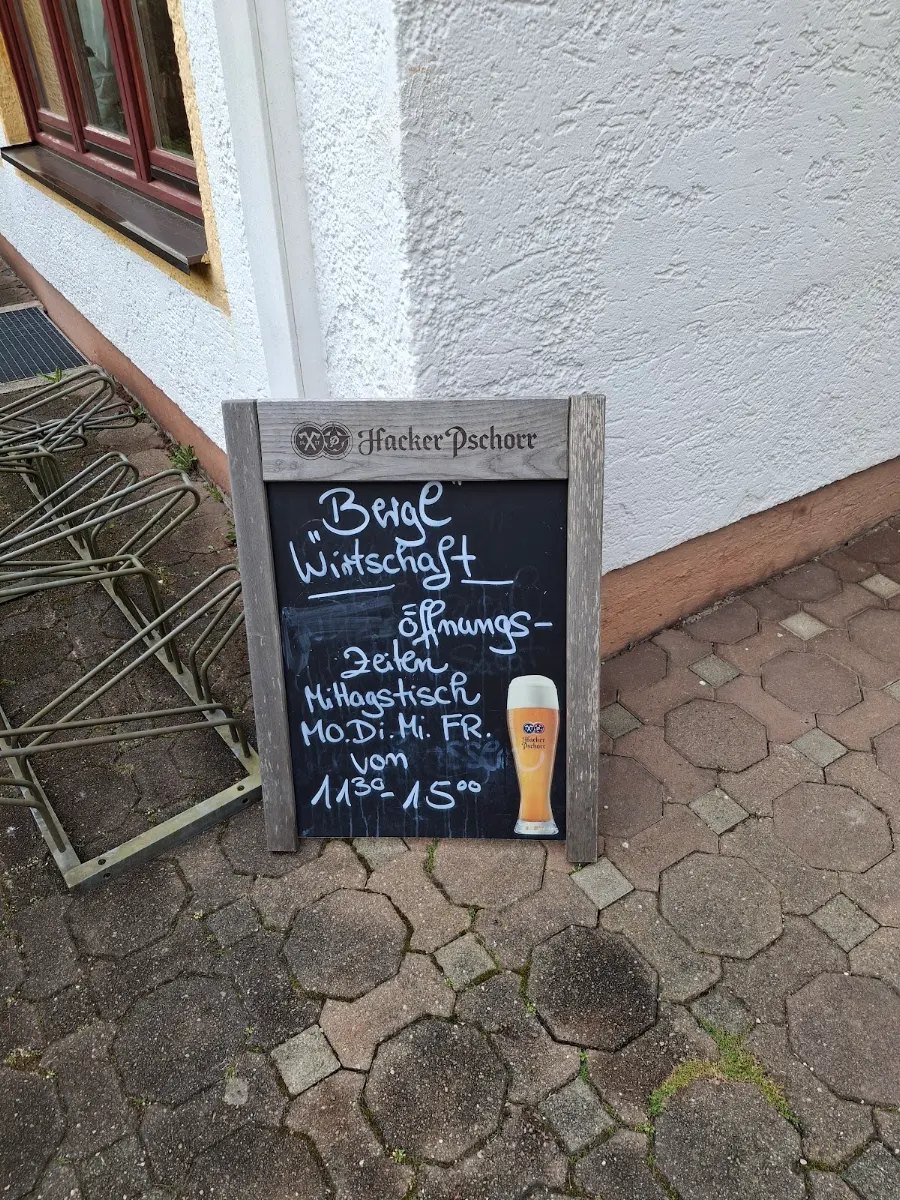 Hacker Pschorr
Bergl"
"Wirtschaft
öffnungs-
zeiten
Mittagstisch
MO.Di.Mi. FR.
von
11³⁰-15⁰⁰
Hacker
Pschorr